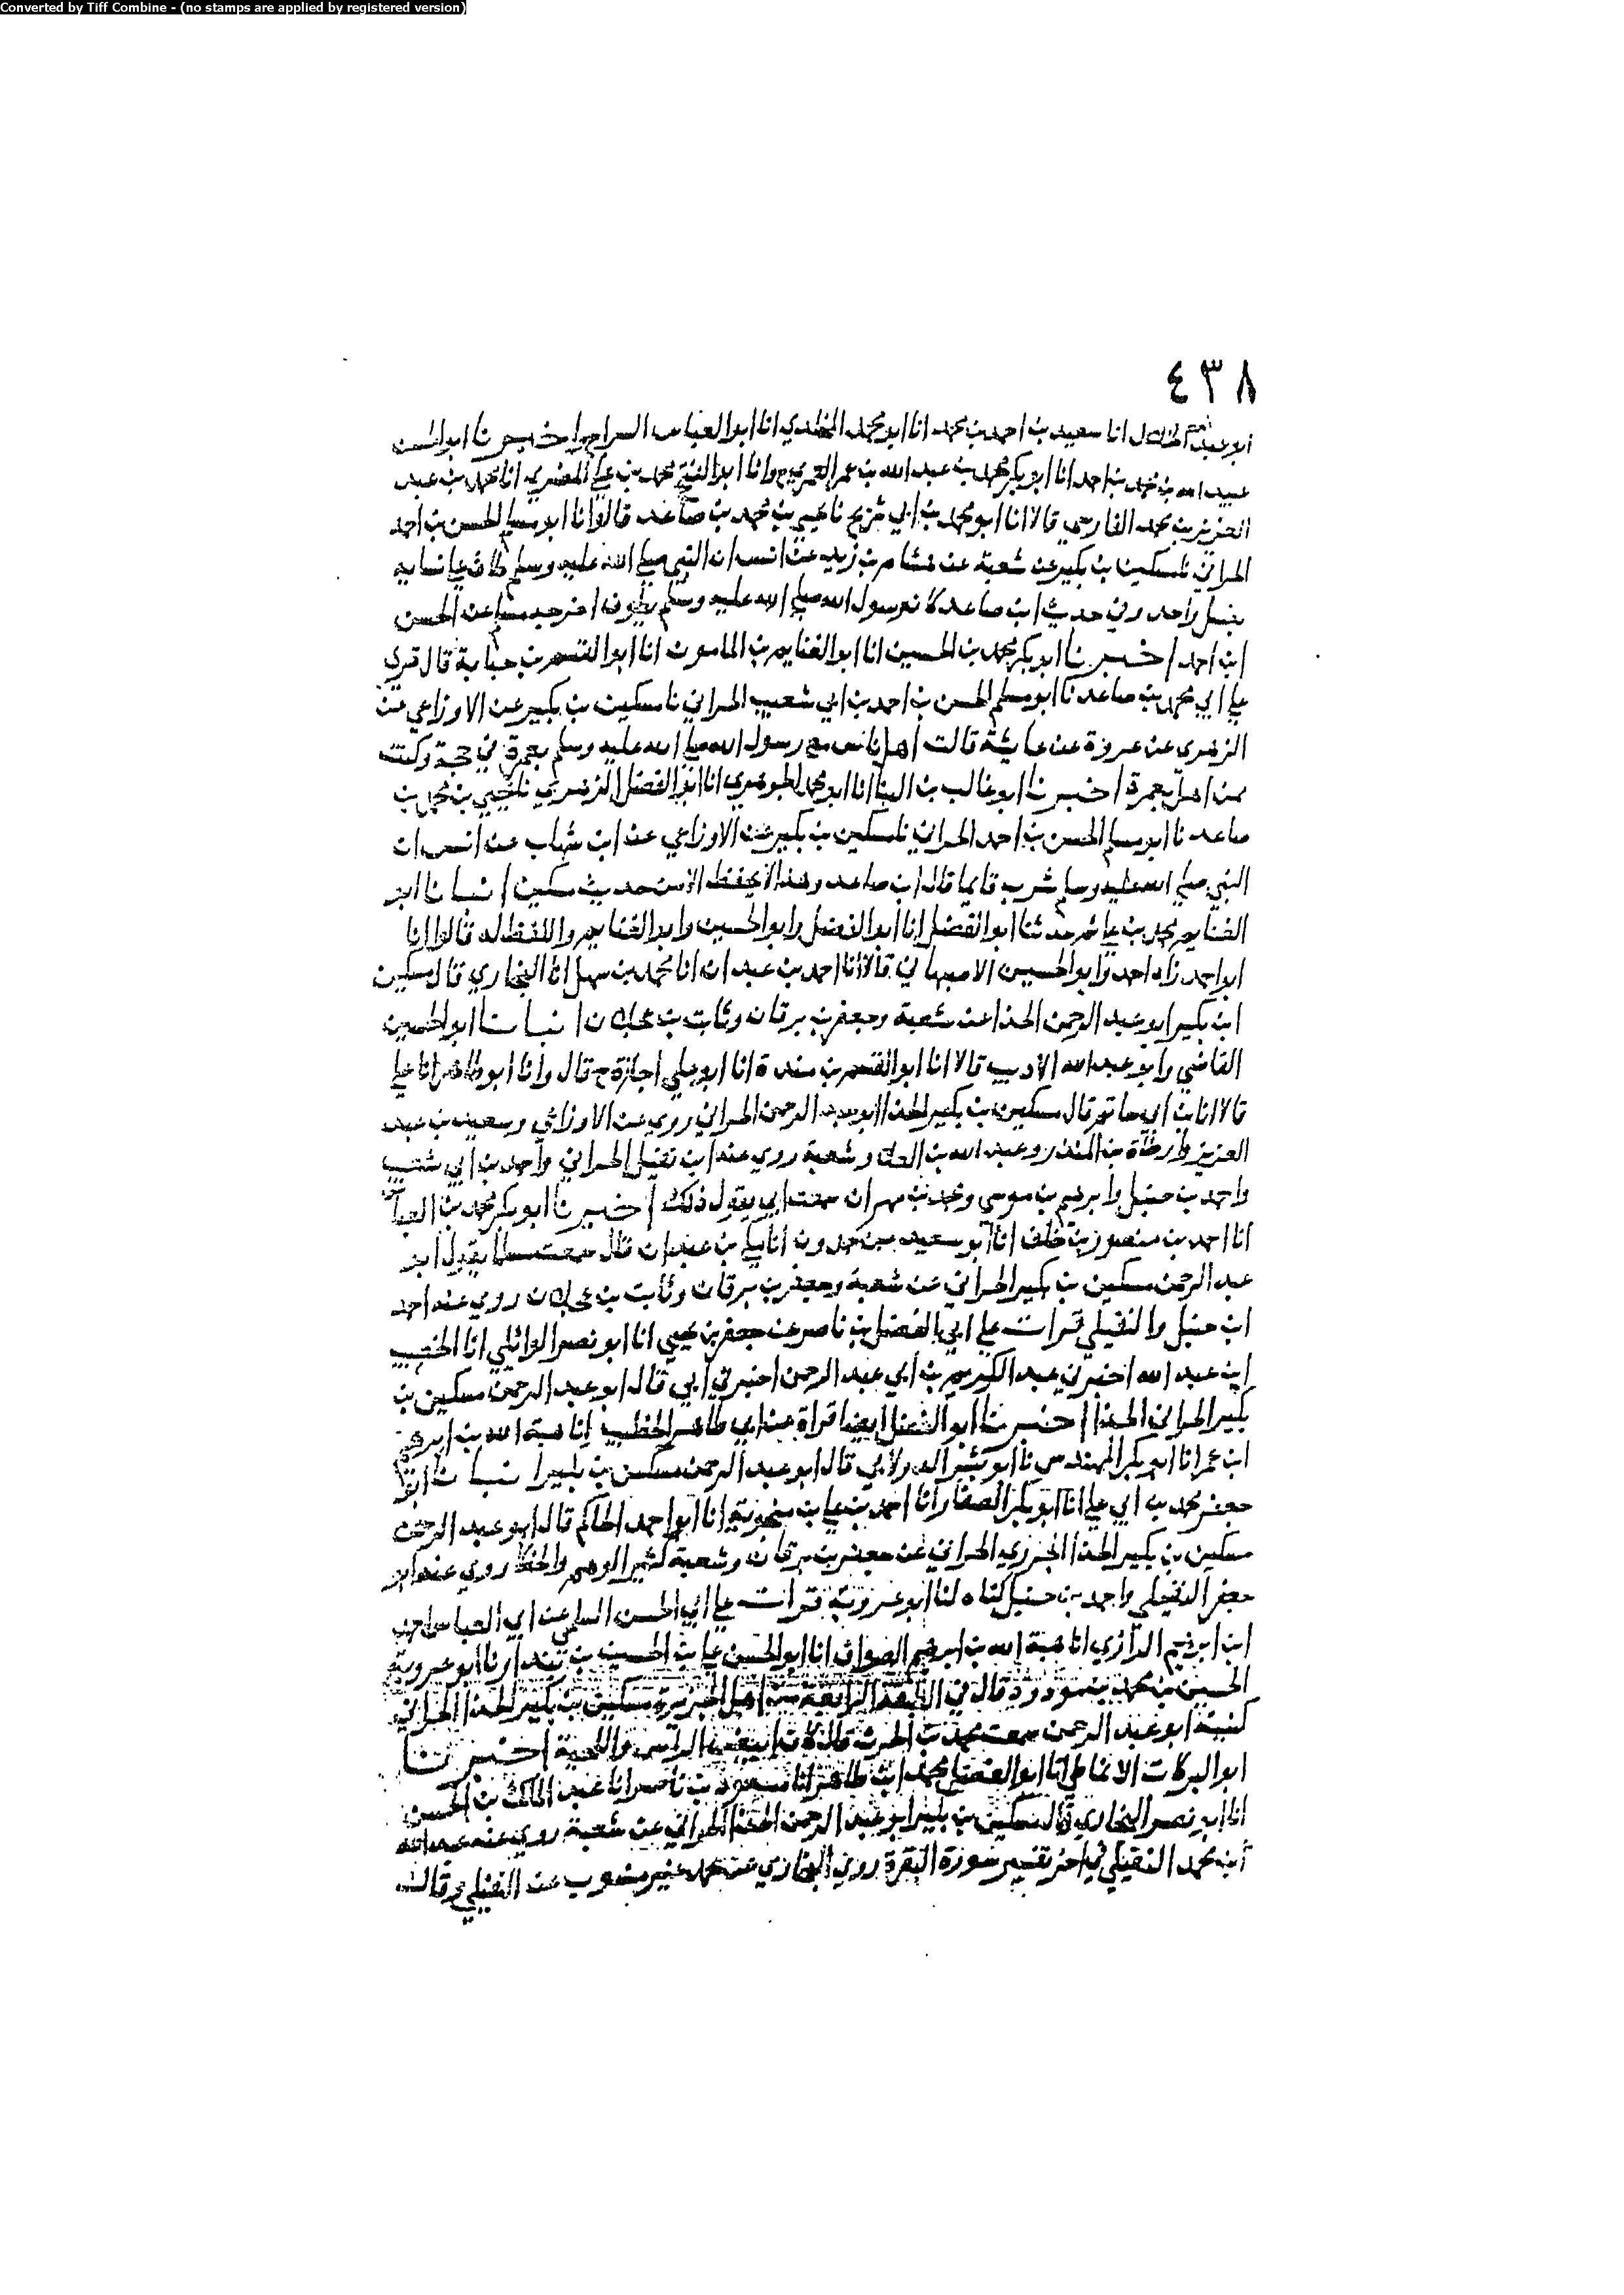 Converted by Tiff Combine - (no stamps are applied by registered version)
٤٣٨
انا سعيد بن احمد بن محمد انا ابو محمد المخلدي انا ابو العباس السراج واخبرنا ابو الحسن
عبيد الله بن محمد بن احمد انا ابو بكر محمد بن عبد الله بن عمر العمري ح وانا ابو الفتح محمد بن علي المضري انا محمد بن عبد
العزيز بن محمد الفارسي قالا انا ابو محمد بن ابي شريح نا يحيى بن محمد بن صاعد قالوا نا ابو مسلم الحسن بن احمد
الحراني نا مسكين بن بكير عن شعبة عن هشام بن زيد عن انس ان النبي صلى الله عليه وسلم طاف على نسايه
بغسل واحد وفي حديث ابن صاعد كان رسول الله صلى الله عليه وسلم يطوف اخرجه مسلم عن الحسن
ابن احمد اخبرنا ابو بكر محمد بن الحسين انا ابو الغنايم بن المامون انا ابو القسم بن حبابة قال قري
علي ابي محمد بن صاعد نا ابو مسلم الحسن بن احمد بن ابي شعيب الحراني نا مسكين بن بكير عن الاوزاعي عن
الزهري عن عروة عن عايشة قالت اهل ناس مع رسول الله صلى الله عليه وسلم بعمرة في حجة وكنت
ممن اهل بعمرة اخبرنا ابو غالب بن البنا انا ابو محمد الجوهري انا ابو الفضل الزهري نا يحيى بن محمد بن
صاعد نا ابو مسلم الحسن بن احمد الحراني نا مسكين بن بكير عن الاوزاعي عن ابن شهاب عن انس ان
النبي صلى الله عليه وسلم شرب قايما قال ابن صاعد وهذا لا يحفظ الا من حديث مسكين انبانا ابو
الغنايم محمد بن علي ثم حدثنا ابو الفضل انا ابو الفضل وابو الحسين وابو الغنايم واللفظ له قالوا انا
ابو احمد زاد احمد وابو الحسين الاصبهاني قالا انا احمد بن عبدان انا محمد بن سهل انا البخاري قال مسكين
ابن بكير ابو عبد الرحمن الحذا عن شعبة وجعفر بن برقان وثابت بن عجلان انبانا ابو الحسين
القاضي وابو عبد الله الاديب قالا انا ابو القسم بن مندة انا ابو علي اجازة ح قال وانا ابو طاهر انا علي
قالا انا ابن ابي حاتم قال مسكين بن بكير الحذا ابو عبد الرحمن الحراني روى عن الاوزاعي وسعيد بن عبد
العزيز وارطاة بن المنذر وعبد الله بن العلا وشعبة روي عنه ابن نفيل الحراني واحمد بن ابي شعيب
واحمد بن حنبل وابرهيم بن موسى ومحمد بن مهران سمعت ابي يقول ذلك اخبرنا ابو بكر محمد بن العباس
انا احمد بن منصور بن خلف انا ابو سعيد بن حمدون انا مكي بن عبدان قال سمعت مسلما يقول ابو
عبد الرحمن مسكين بن بكير الحراني عن شعبة وجعفر بن برقان وثابت بن عجلان روي عنه احمد
ابن حنبل والنفيلي قرات علي ابي الفضل بن ناصر عن جعفر بن يحيى انا ابو نصر الوائلي انا الخصيب
ابن عبد الله اخبرني عبد الكريم بن ابي عبد الرحمن اخبرني ابي قال ابو عبد الرحمن مسكين بن
بكير الحراني الحذا اخبرنا ابو الفضل ايضا قراة عن ابي طاهر الخطيب انا هبة الله بن ابرهيم
ابن عمر انا ابو بكر المهندس نا ابو بشر الدولابي قال ابو عبد الرحمن مسكين بن بكير انبانا ابو
جعفر محمد بن ابي علي انا ابو بكر الصفار انا احمد بن علي بن منجوية انا ابو احمد الحاكم قال ابو عبد الرحمن
مسكين بن بكير الحذا الجزري الحراني عن جعفر بن برقان وشعبة كثير الوهم والخطا روي عنه ابو
جعفر النفيلي واحمد بن حنبل كناه لنا ابو عروبة قرات علي ابي الحسن السلمي عن ابي العباس احمد
ابن ابرهيم الرازي انا هبة الله بن ابرهيم الصواف انا ابو الحسن علي بن الحسين بن بندار نا ابو عروبة
الحسين بن محمد بن مودود قال في الطبقة الرابعة من اهل الجزيرة مسكين بن بكير الحذا الحراني
كنيته ابو عبد الرحمن سمعت محمد بن الحرث قال كان ابيض الراس واللحية اخبرنا
ابو البركات الانماطي انا ابو الفضل محمد بن طاهر انا مسعود بن ناصر انا عبد الملك بن الحسن
انا ابو نصر البخاري قال مسكين بن بكير ابو عبد الرحمن الحذا الحراني عن شعبة روي عنه عبد الله
ابن محمد النفيلي في اخر تفسير سورة البقرة روي البخاري عن محمد غير منسوب عن النفيلي وقال